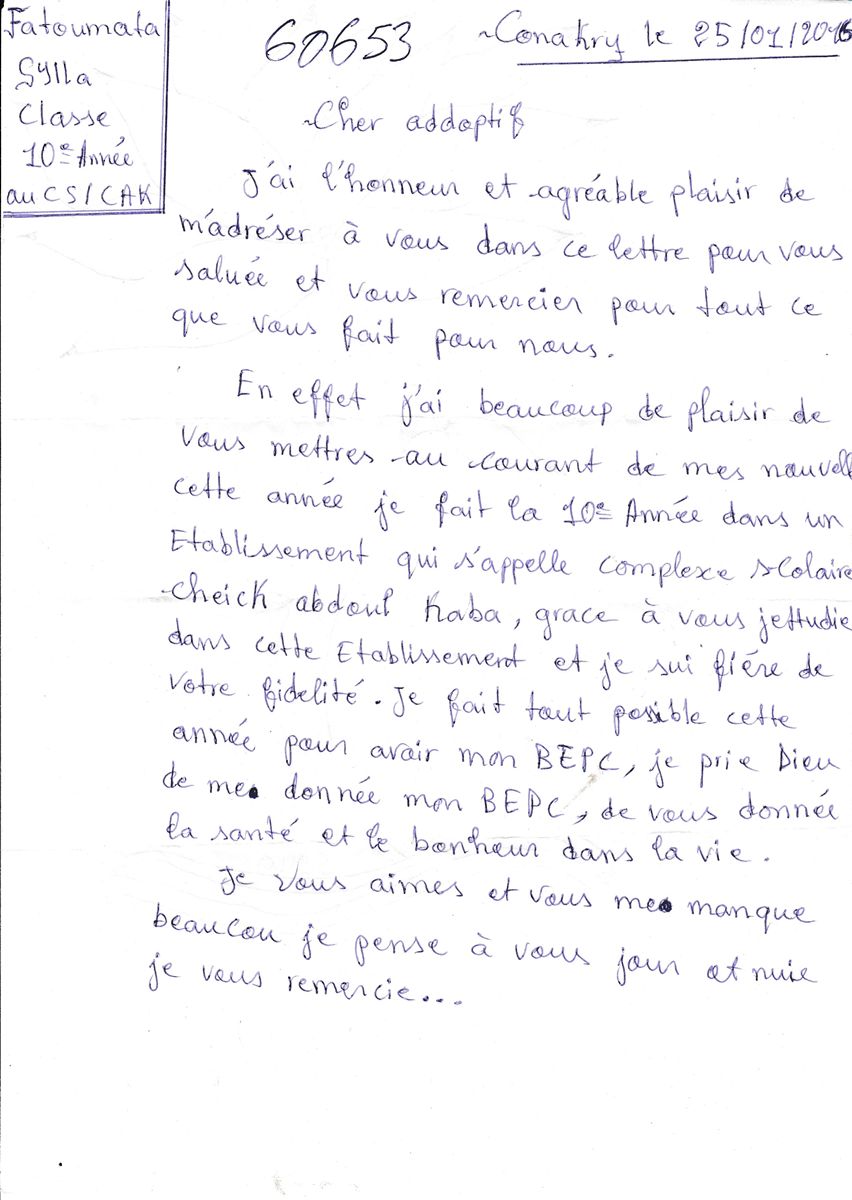 Fatoumata
Sylla
Classe
10e Année
au CS/CAK
60653
Conakry le 25/01/2016
Cher addoptif
J'ai l'honneur et agréable plaisir de
m'adréser à vous dans ce lettre pour vous
saluée et vous remercier pour tout ce
que vous fait pour nous.
En effet j'ai beaucoup de plaisir de
vous mettres au courant de mes nouvell
cette année je fait la 10e Année dans un
Etablissement qui s'appelle complexe scolaire
cheick abdoul Kaba, grace à vous jettudie
dans cette Etablissement et je sui fiére de
votre fidelité. Je fait tout possible cette
année pour avoir mon BEPC, je prie Dieu
de me donnée mon BEPC, de vous donnée
la santé et le bonheur dans la vie.
Je vous aimes et vous me manque
beaucou je pense à vous jour et nuie
je vous remercie...